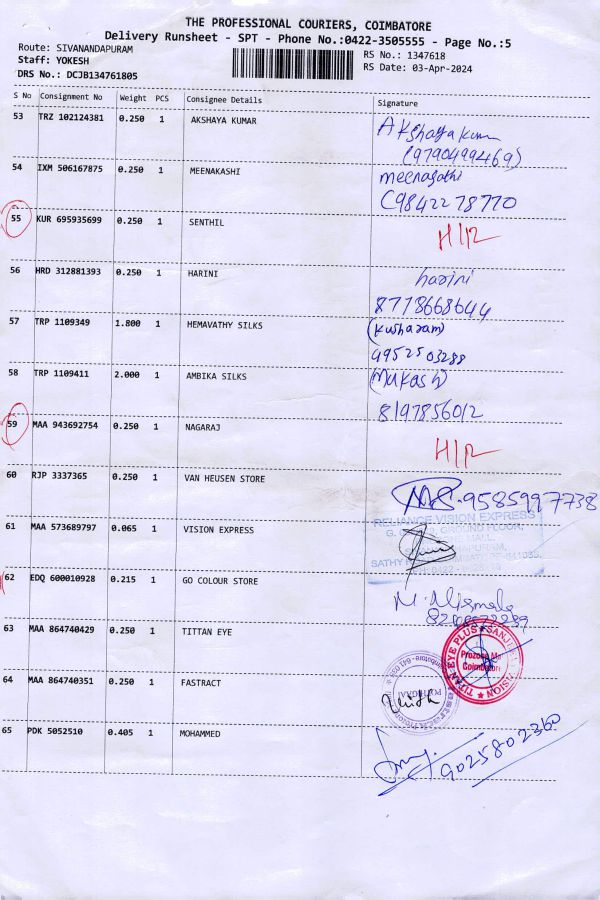 THE PROFESSIONAL COURIERS, COIMBATORE
Delivery Runsheet - SPT - Phone No.:0422-3505555 - Page No.:5
Route: SIVANANDAPURAM
RS No.: 1347618
Staff: YOKESH
RS Date: 03-Apr-2024
DRS No.: DCJB134761805
S No Consignment No Weight PCS Consignee Details Signature
53 TRZ 102124381 0.250 1 AKSHAYA KUMAR Akshaya kum
(9790499469)
54 IXM 506167875 0.250 1 MEENAKASHI meenagathi
(9842278770
55 KUR 695935699 0.250 1 SENTHIL H/R
56 HRD 312881393 0.250 1 HARINI harini
8778668644
57 TRP 1109349 1.800 1 HEMAVATHY SILKS (kusharam)
9952503288
58 TRP 1109411 2.000 1 AMBIKA SILKS (Mukash)
8197856012
59 MAA 943692754 0.250 1 NAGARAJ H/R
60 RJP 3337365 0.250 1 VAN HEUSEN STORE 9585997738
61 MAA 573689797 0.065 1 VISION EXPRESS
RELIANCE VISION EXPRESS
62 EDQ 600010928 0.215 1 GO COLOUR STORE
63 MAA 864740429 0.250 1 TITTAN EYE
TITAN EYE PLUS ★ SANJEE VISION ★
Prozone Ma
Coimbatore
64 MAA 864740351 0.250 1 FASTRACT
65 PDK 5052510 0.405 1 MOHAMMED 9025802360